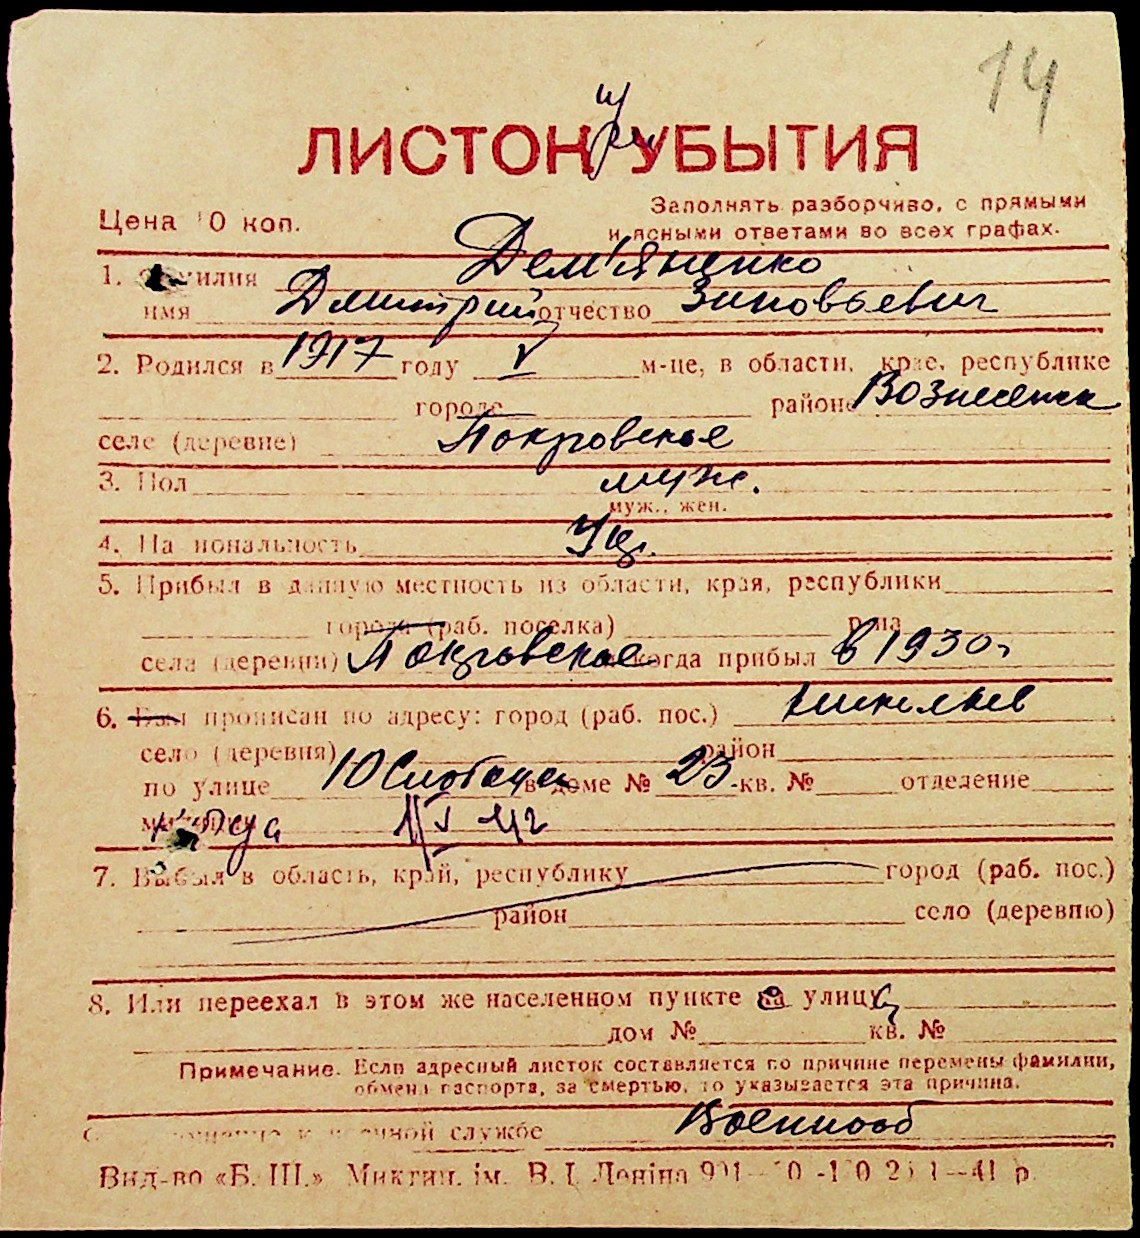 14
ЛИСТОК УБЫТИЯ
Цена 10 коп.
Заполнять разборчиво, с прямыми
и ясными ответами во всех графах.
1. Фамилия Дем'яненко
имя Дмитрий отчество Зиновьевич
2. Родился в 1917 году V м-це, в области, крае, республике
городе районе Вознесенск
селе (деревне) Покровское
3. Пол муж.
муж., жен.
4. Национальность Укр.
5. Прибыл в данную местность из области, края, республики
города (раб. поселка) р-на
села (деревни) Покровское когда прибыл в 1930 г
6. Был прописан по адресу: город (раб. пос.) Николаев
село (деревня) район
по улице 10 Слободск в доме № 23 кв. № отделение
милиции
7. Выбыл в область, край, республику город (раб. пос.)
район село (деревню)
8. Или переехал в этом же населенном пункте на улицу
дом № кв. №
Примечание. Если адресный листок составляется по причине перемены фамилии,
обмена паспорта, за смертью, то указывается эта причина.
Отношение к военной службе Военнооб
Вид-во «Б. Ш.» Микгин. ім. В. І. Леніна 41 р.